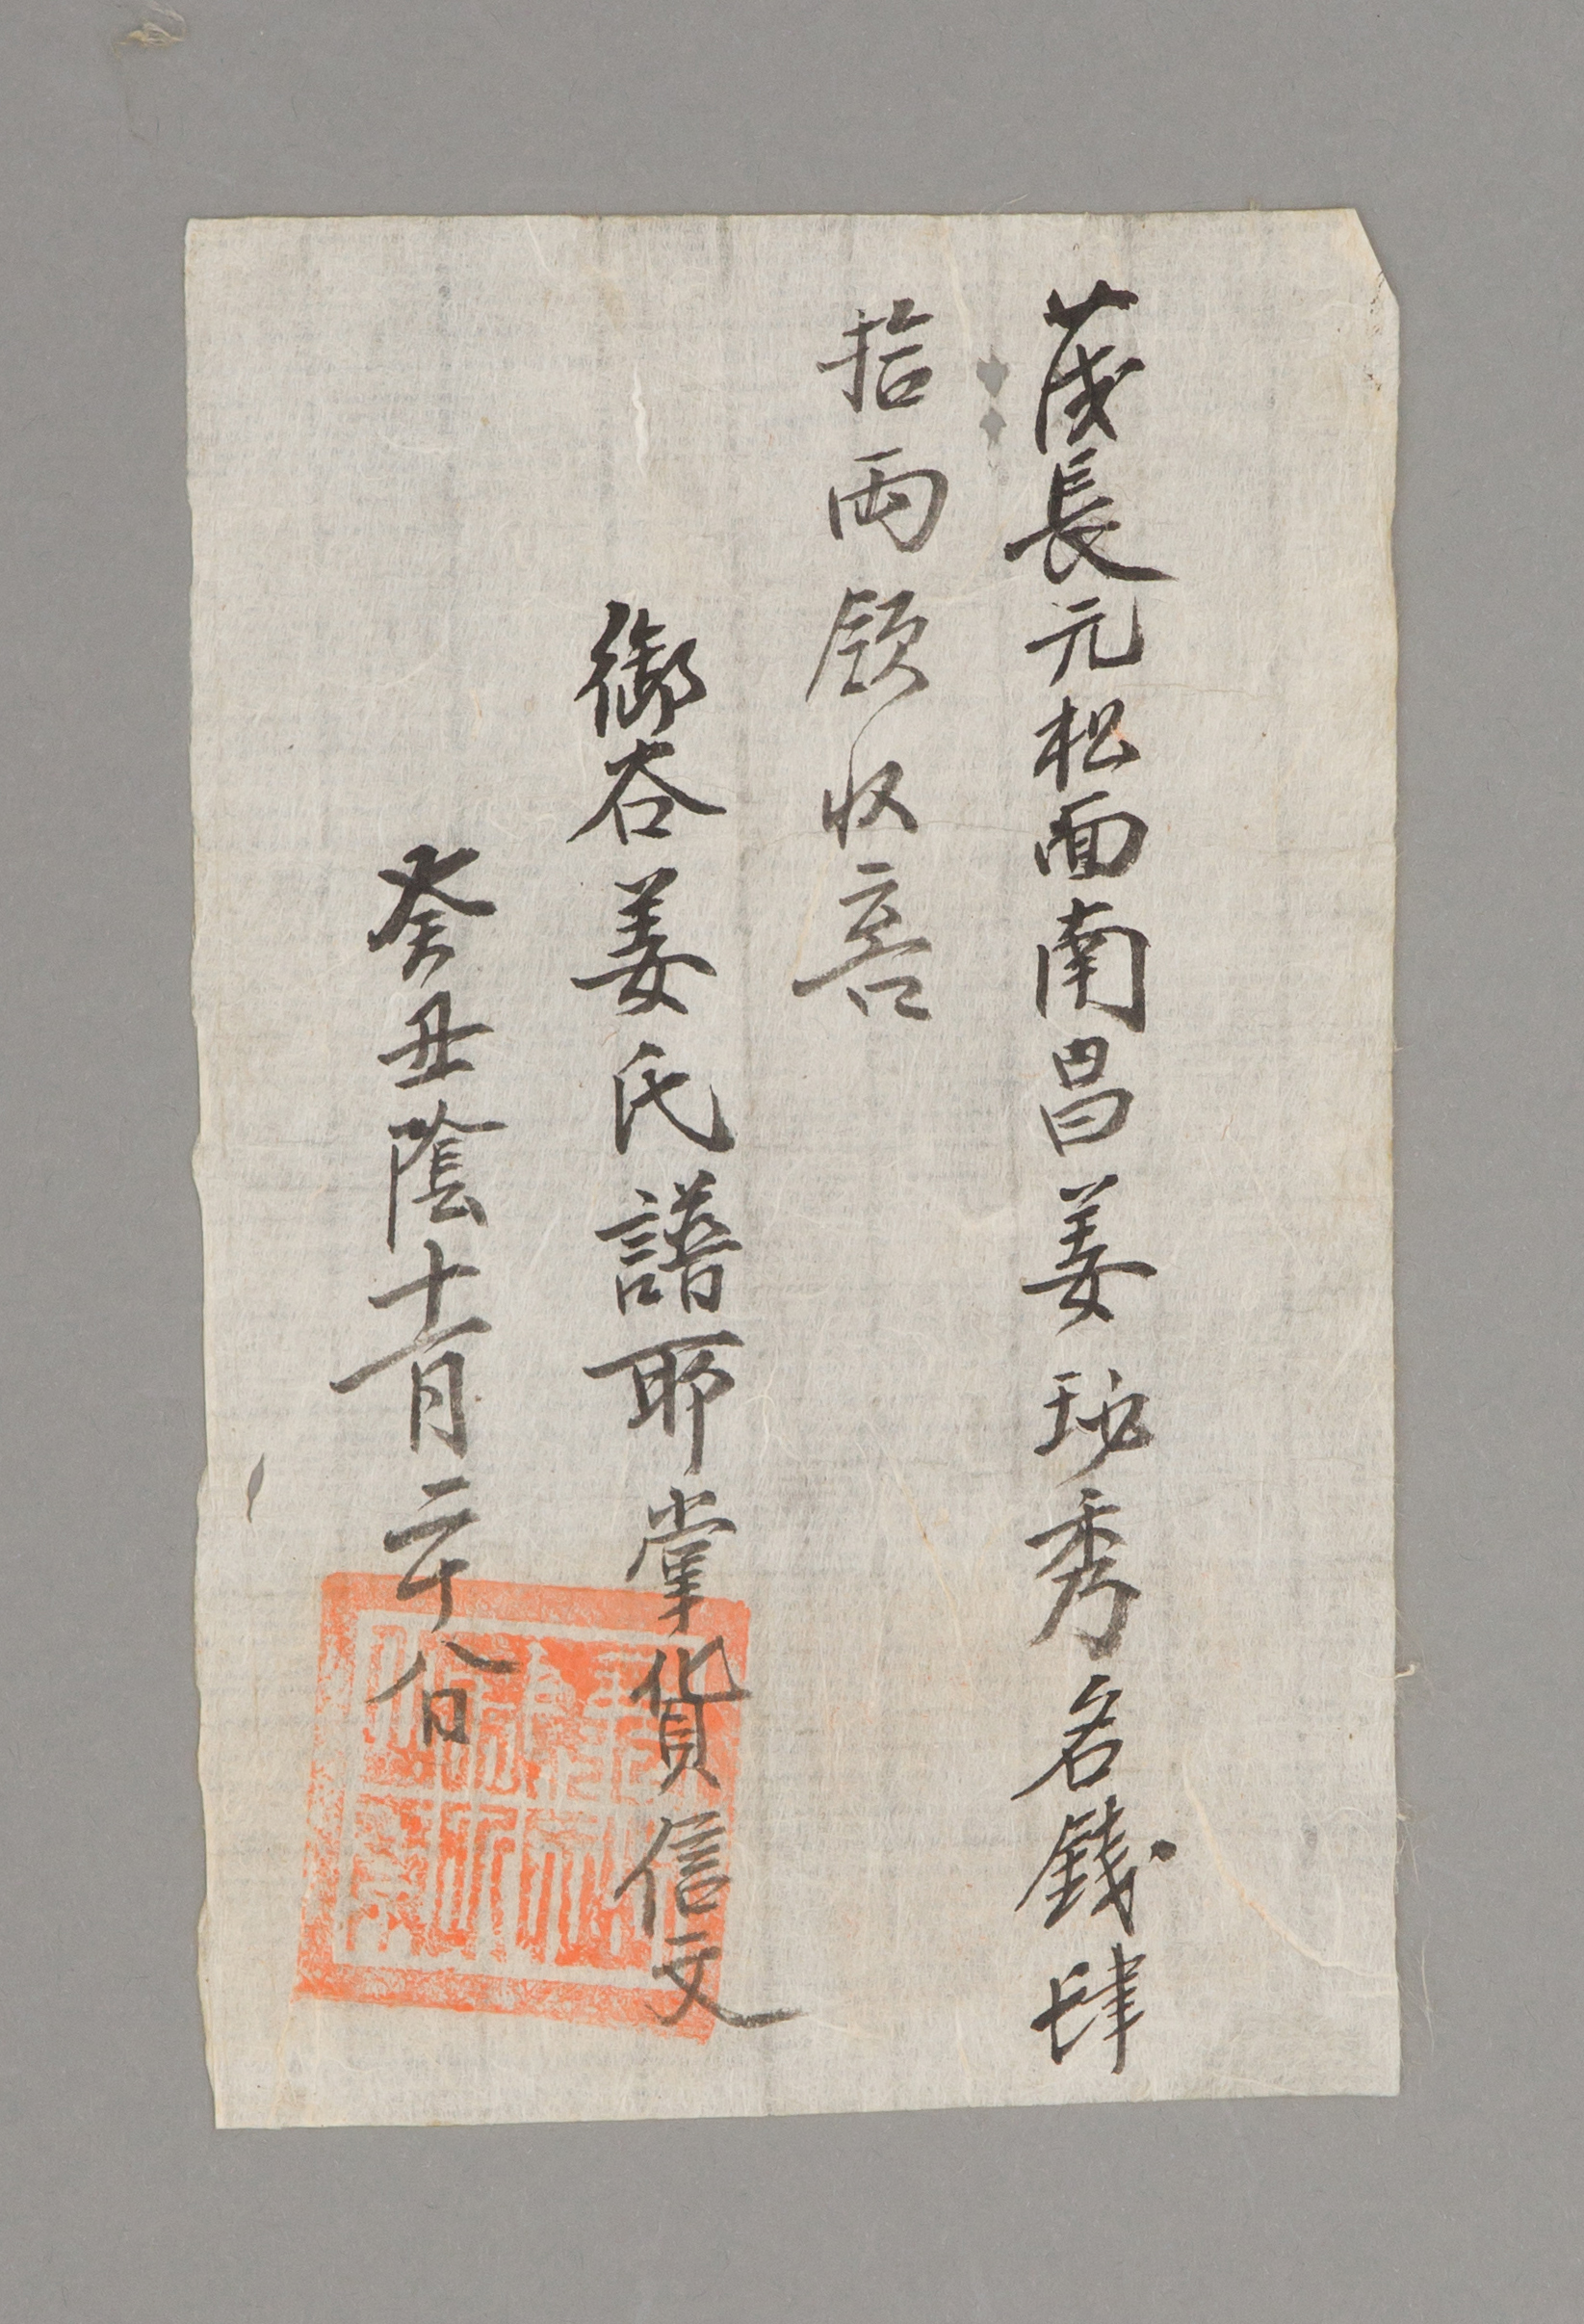 茂長元松面南昌姜珌秀名錢肆
拾兩領收章
御谷姜氏譜所掌貨信文
癸丑陰十一月二十八日